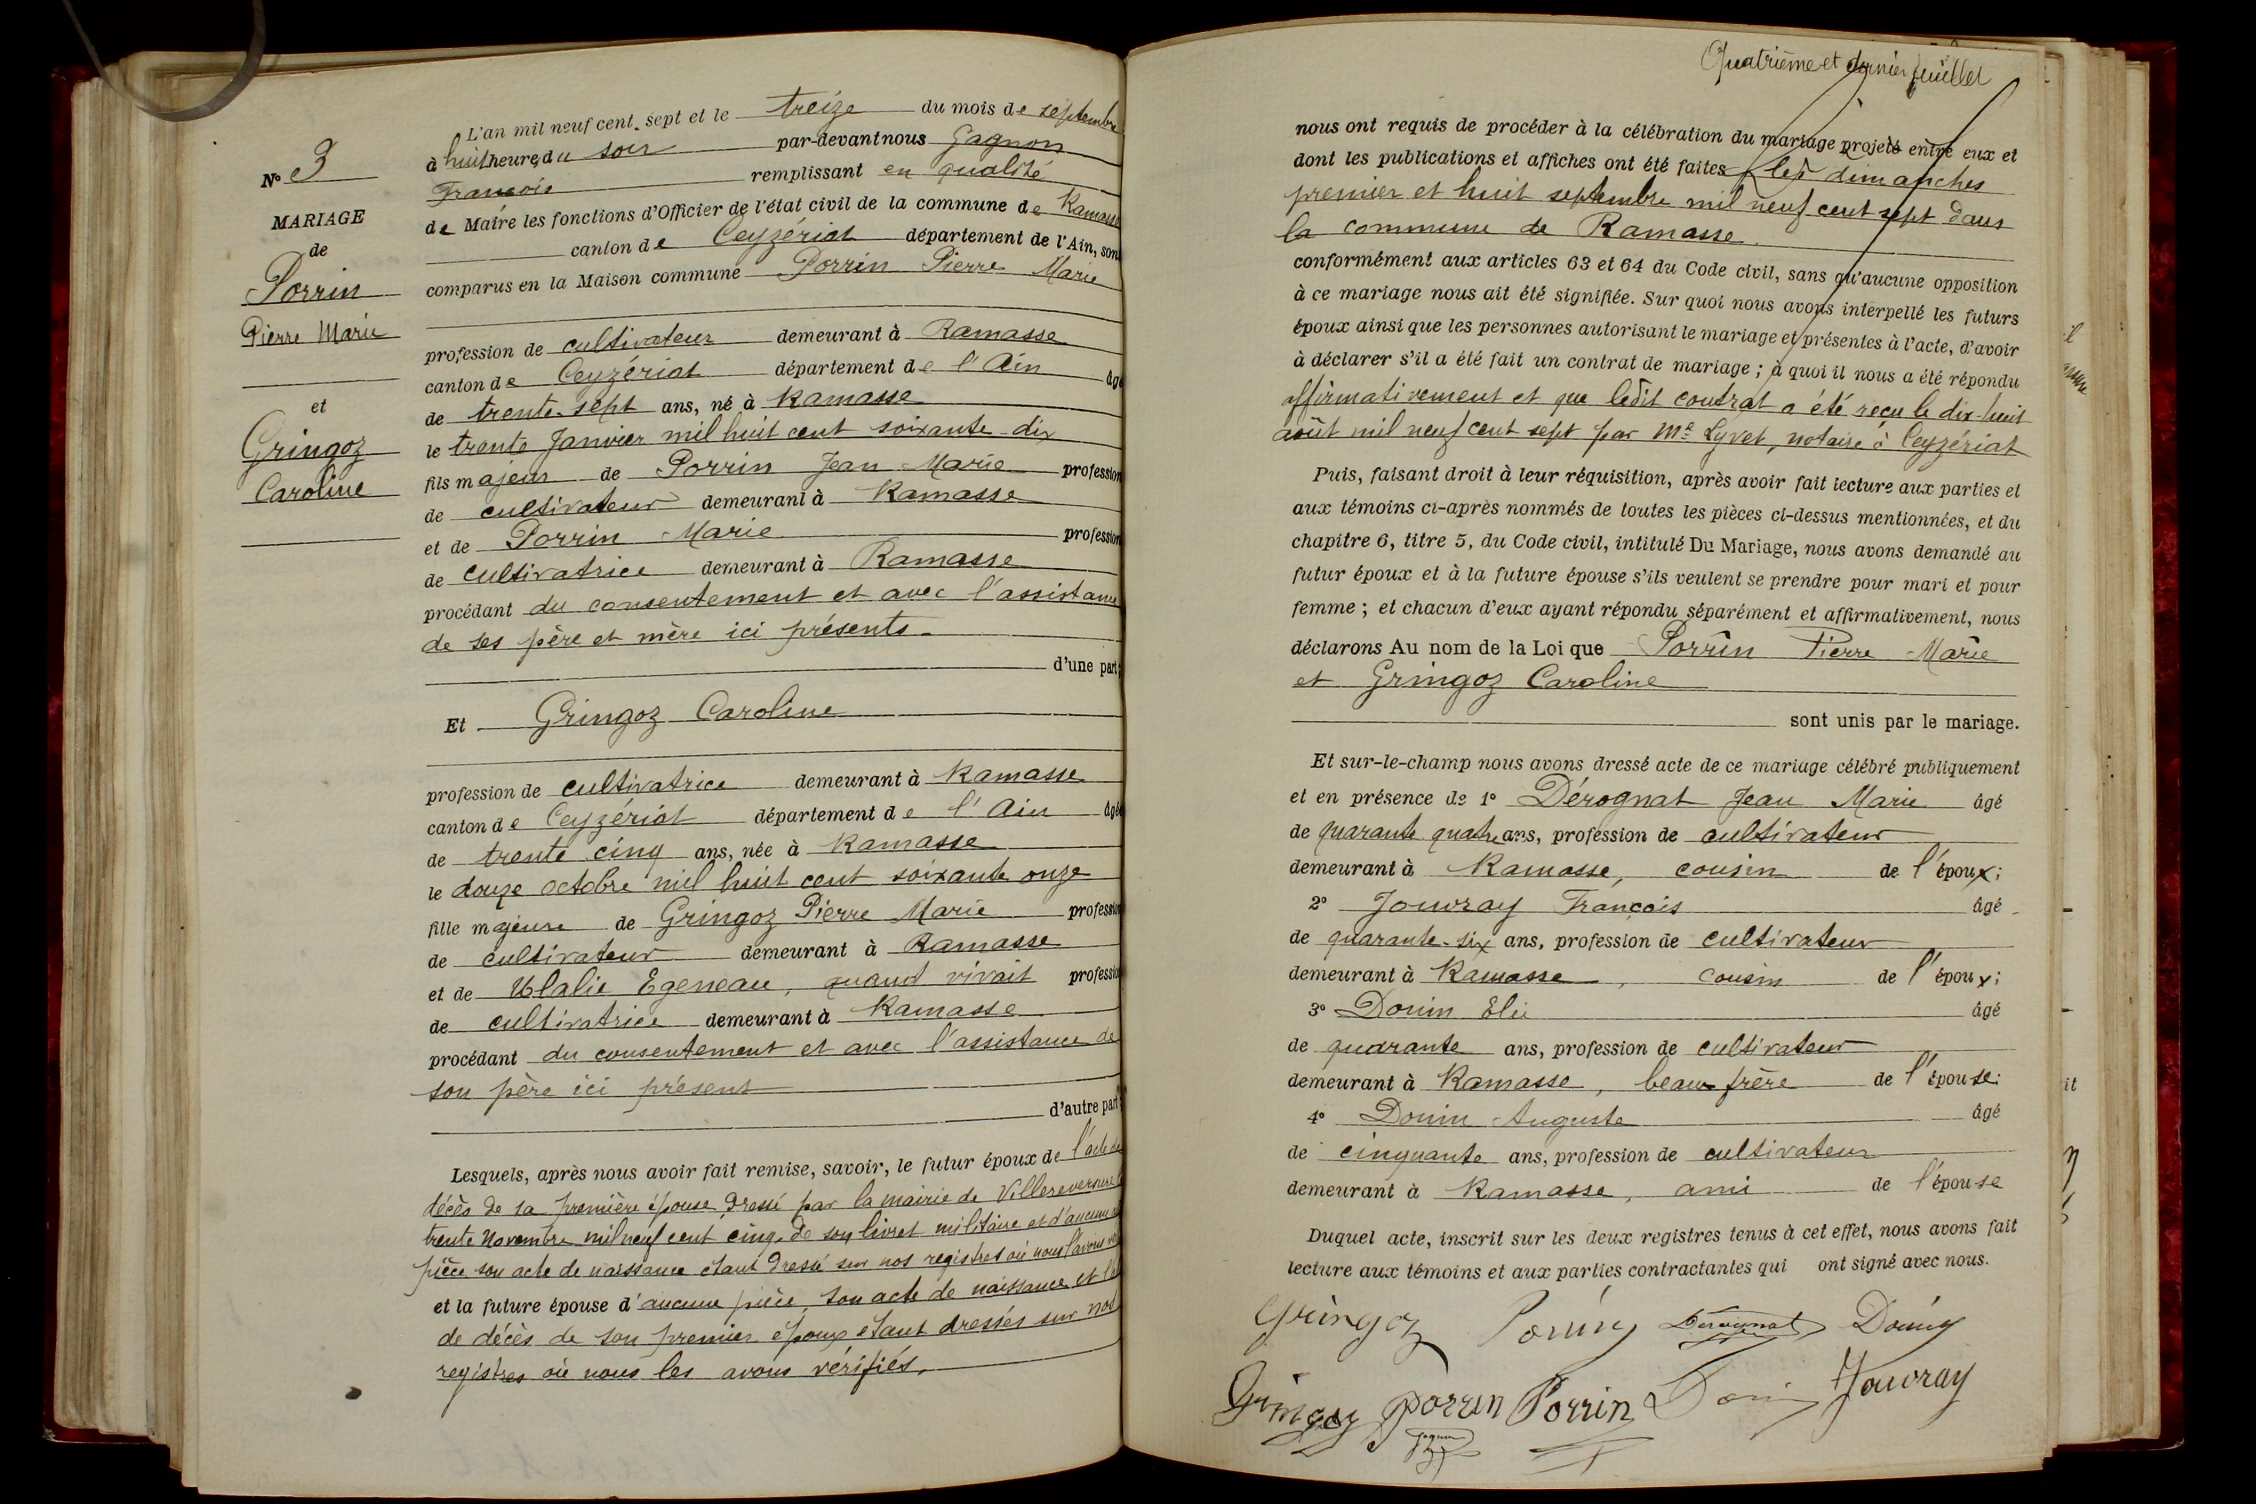 N° 3
MARIAGE
de
Porrin
Pierre Marie
et
Gringoz
Caroline
L'an mil neuf cent sept et le treize du mois de septembre
à huit heures du soir par-devant nous Gagnon
François remplissant en qualité
de Maire les fonctions d'Officier de l'état civil de la commune de Ramasse
canton de Ceyzériat département de l'Ain, sont
comparus en la Maison commune Porrin Pierre Marie
profession de cultivateur demeurant à Ramasse
canton de Ceyzériat département de l'Ain âgé
de trente-sept ans, né à Ramasse
le trente Janvier mil huit cent soixante-dix
fils majeur de Porrin Jean-Marie profession
de cultivateur demeurant à Ramasse
et de Porrin Marie profession
de cultivatrice demeurant à Ramasse
procédant du consentement et avec l'assistance
de ses père et mère ici présents.
d'une part;
Et Gringoz Caroline
profession de cultivatrice demeurant à Ramasse
canton de Ceyzériat département de l'Ain âgée
de trente cinq ans, née à Ramasse
le douze octobre mil huit cent soixante onze
fille majeure de Gringoz Pierre Marie profession
de cultivateur demeurant à Ramasse
et de Ulalie Egeneau, quand vivait profession
de cultivatrice demeurant à Ramasse
procédant du consentement et avec l'assistance de
son père ici présent
d'autre part;
Lesquels, après nous avoir fait remise, savoir, le futur époux de l'acte de
décès de sa première épouse dressé par la mairie de Villereversure le
trente Novembre mil neuf cent cinq, de son livret militaire et d'aucune
pièce son acte de naissance étant dressé sur nos registres où nous l'avons
et la future épouse d'aucune pièce, son acte de naissance et le
de décès de son premier époux étant dressés sur nos
registres où nous les avons vérifiés.
Quatrième et dernier feuillet
nous ont requis de procéder à la célébration du mariage projeté entre eux et
dont les publications et affiches ont été faites les dimanches
premier et huit septembre mil neuf cent sept dans
la commune de Ramasse
conformément aux articles 63 et 64 du Code civil, sans qu'aucune opposition
à ce mariage nous ait été signifiée. Sur quoi nous avons interpellé les futurs
époux ainsi que les personnes autorisant le mariage et présentes à l'acte, d'avoir
à déclarer s'il a été fait un contrat de mariage; à quoi il nous a été répondu
affirmativement et que ledit contrat a été reçu le dix-huit
août mil neuf cent sept par Me Lyvet, notaire à Ceyzériat
Puis, faisant droit à leur réquisition, après avoir fait lecture aux parties et
aux témoins ci-après nommés de toutes les pièces ci-dessus mentionnées, et du
chapitre 6, titre 5, du Code civil, intitulé Du Mariage, nous avons demandé au
futur époux et à la future épouse s'ils veulent se prendre pour mari et pour
femme; et chacun d'eux ayant répondu séparément et affirmativement, nous
déclarons Au nom de la Loi que Porrin Pierre-Marie
et Gringoz Caroline
sont unis par le mariage.
Et sur-le-champ nous avons dressé acte de ce mariage célébré publiquement
et en présence de 1° Dérognat Jean Marie âgé
de quarante quatre ans, profession de cultivateur
demeurant à Ramasse, cousin de l'époux;
2° Jouvray François âgé
de quarante-six ans, profession de cultivateur
demeurant à Ramasse, cousin de l'époux;
3° Donin Elie âgé
de quarante ans, profession de cultivateur
demeurant à Ramasse, beau frère de l'épouse;
4° Donin Auguste âgé
de cinquante ans, profession de cultivateur
demeurant à Ramasse, ami de l'épouse
Duquel acte, inscrit sur les deux registres tenus à cet effet, nous avons fait
lecture aux témoins et aux parties contractantes qui ont signé avec nous.
Gringoz Porrin Dérognat Donin
Gringoz Porrin Porrin Donin Jouvray
Gagnon